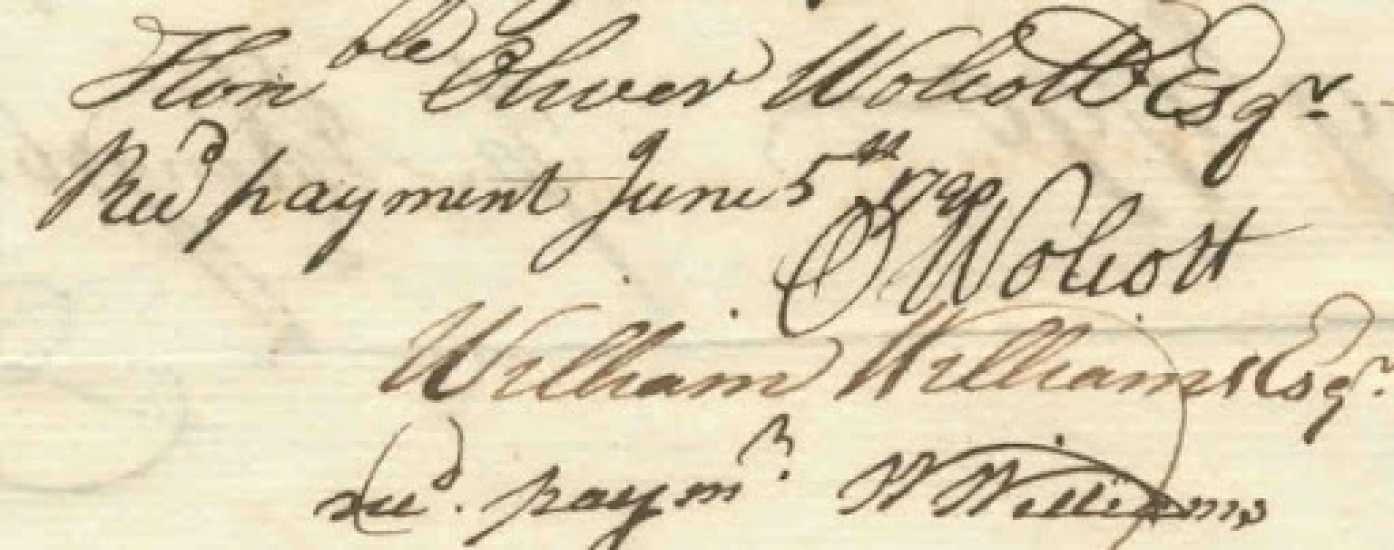 Honble Oliver Wolcott Esqr
Recd payment June 5th 1790
O Wolcott
William Williams Esqr.
recd. paymt. W Williams